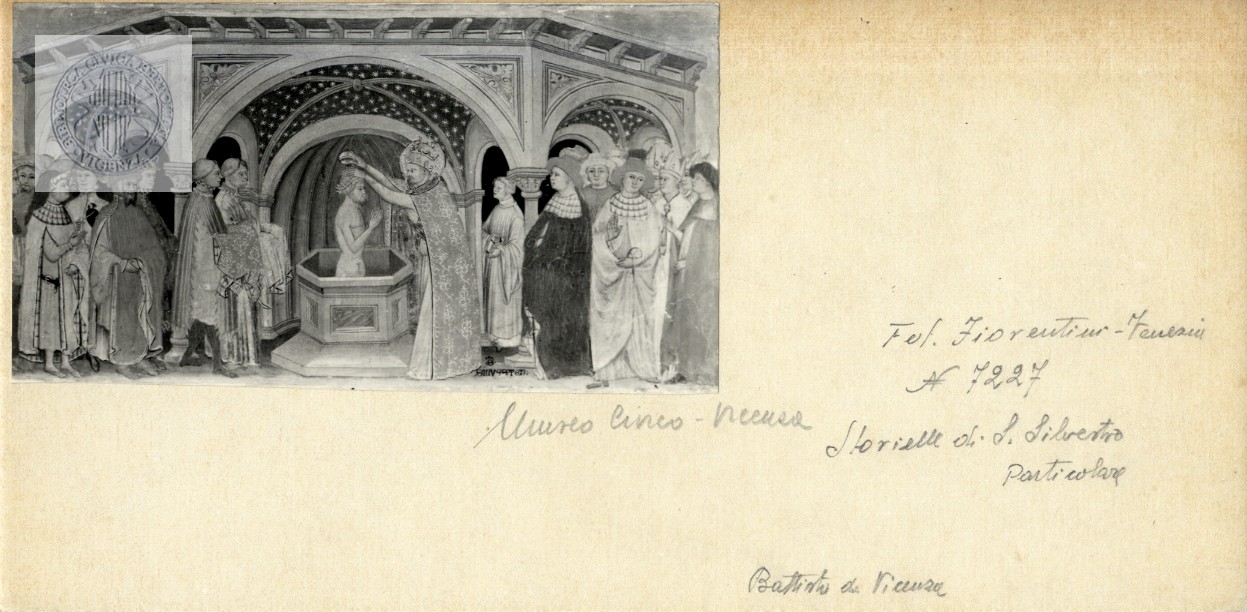 BIBLIOTECA CIVICA BERTOLIANA · VICENZA
Museo Civico - Vicenza
Fot. Fiorentini - Venezia
N 7227
Storielle di S. Silvestro
Particolare
Battista da Vicenza